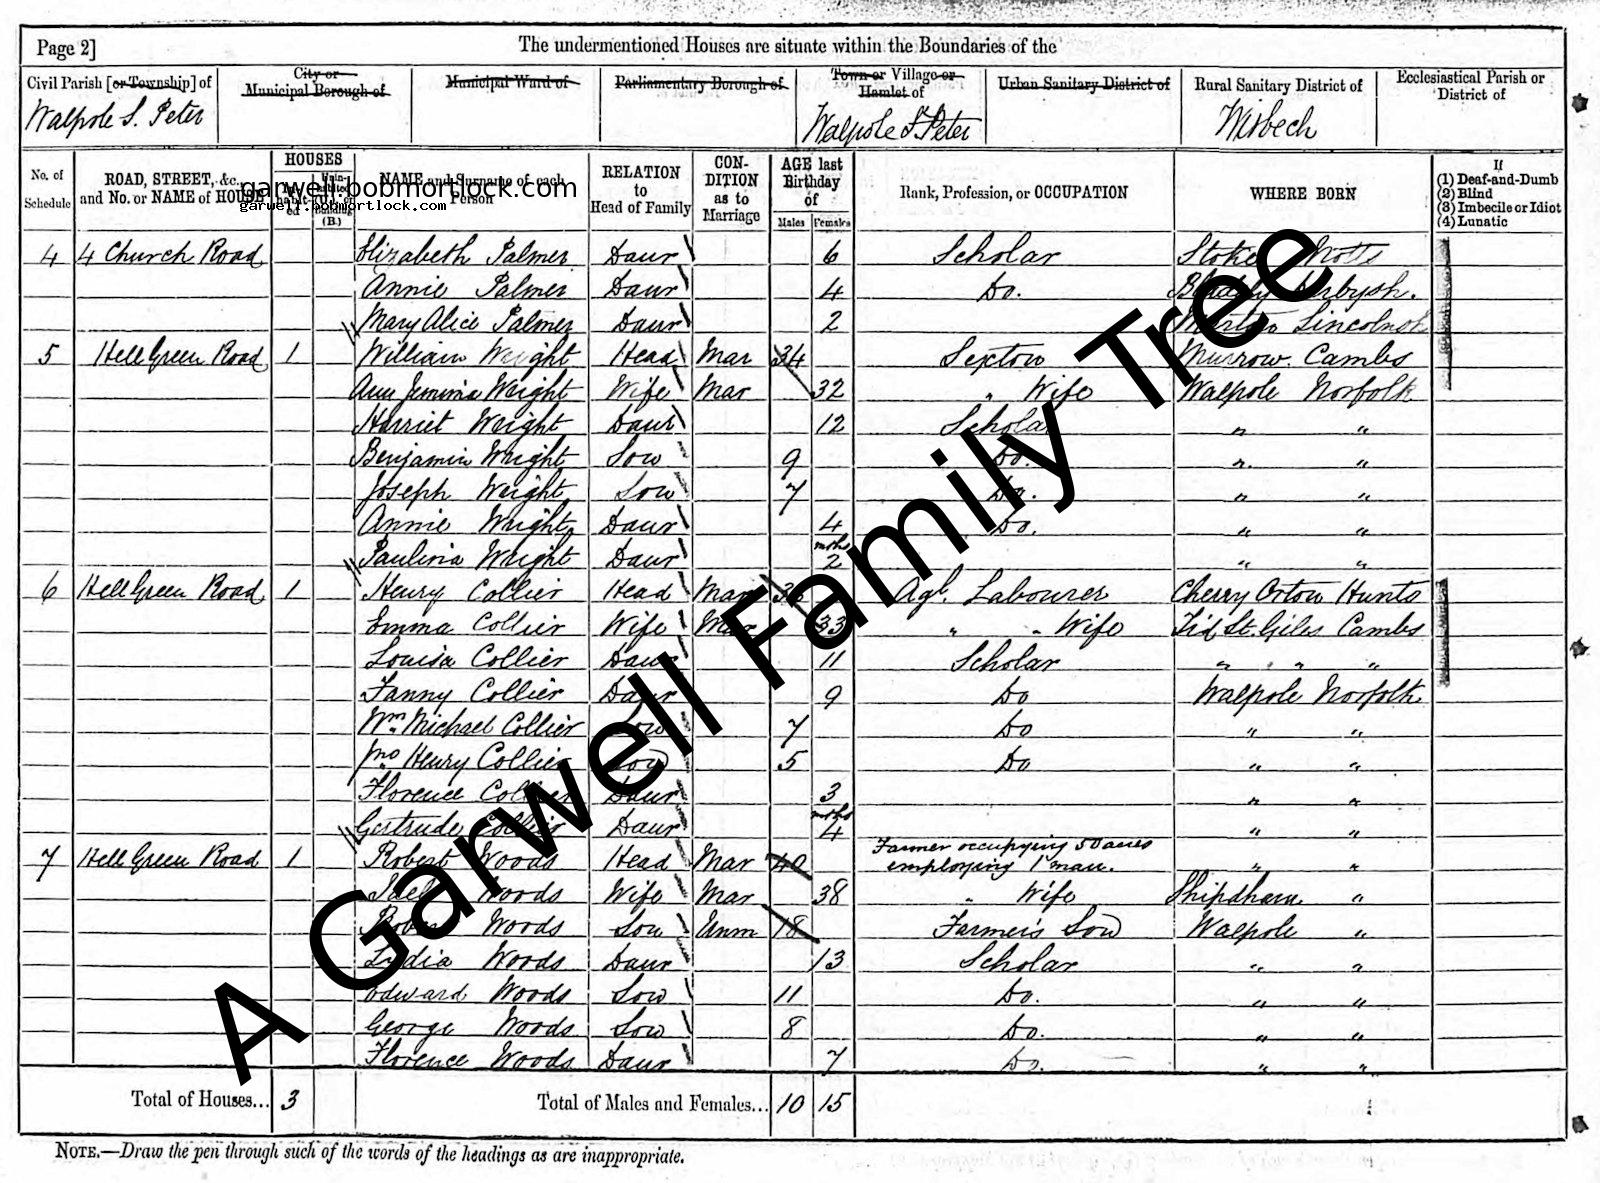 Page 2] The undermentioned Houses are situate within the Boundaries of the
Civil Parish [or Township] of City or Municipal Borough of Municipal Ward of Parliamentary Borough of Town or Village or Hamlet of Urban Sanitary District of Rural Sanitary District of Ecclesiastical Parish or District of
Walpole S. Peter Walpole S. Peter Wisbech
No. of Schedule ROAD, STREET, &c., and No. or NAME of HOUSE HOUSES (B.) NAME and Surname of each Person RELATION to Head of Family CONDITION as to Marriage AGE last Birthday of Males Females Rank, Profession, or OCCUPATION WHERE BORN If (1) Deaf-and-Dumb (2) Blind (3) Imbecile or Idiot (4) Lunatic
garwell.bobmortlock.com
garwell.bobmortlock.com
4 4 Church Road Elizabeth Palmer Daur 6 Scholar Stoke Notts
Annie Palmer Daur 4 Do. Derbysh.
Mary Alice Palmer Daur 2 Lincolnsh
5 Hell Green Road 1 William Wright Head Mar 34 Sexton Murrow Cambs
Ann Jemima Wright Wife Mar 32 " Wife Walpole Norfolk
Harriet Wright Daur 12 Scholar " "
Benjamin Wright Son 9 Do. " "
Joseph Wright Son 7 Do. " "
Annie Wright Daur 4 Do. " "
Paulina Wright Daur mths 2 " "
6 Hell Green Road 1 Henry Collier Head Mar 36 Agl. Labourer Cherry Orton Hunts
Emma Collier Wife Mar 33 " " Wife Tid St. Giles Cambs
Louisa Collier Daur 11 Scholar " " "
Fanny Collier Daur 9 Do Walpole Norfolk
Wm. Michael Collier Son 7 Do " "
Jno Henry Collier Son 5 Do " "
Florence Collier Daur 3 " "
Gertrude Collier Daur mths 4 " "
7 Hell Green Road 1 Robert Woods Head Mar 40 Farmer occupying 50 acres employing 1 man. " "
Woods Wife Mar 38 " Wife Shipdham "
Robert Woods Son Unm 18 Farmer's Son Walpole "
Lydia Woods Daur 13 Scholar " "
Edward Woods Son 11 Do. " "
George Woods Son 8 Do. " "
Florence Woods Daur 7 Do. " "
Total of Houses... 3 Total of Males and Females... 10 15
NOTE.—Draw the pen through such of the words of the headings as are inappropriate.
A Garwell Family Tree